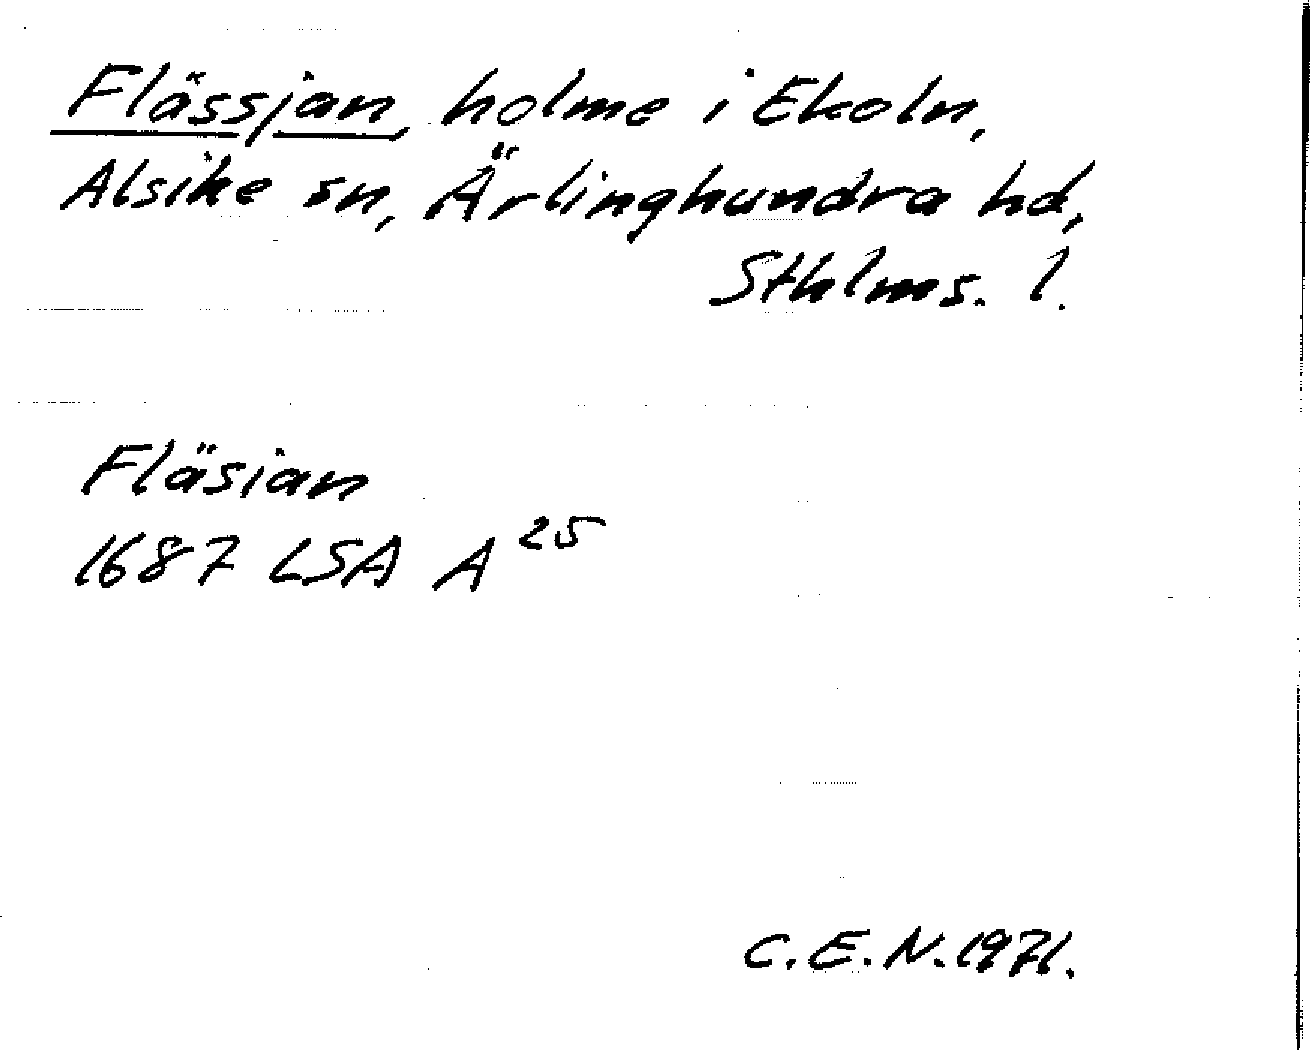 Flässjan, holme i Ekoln,
Alsike sn, Ärlinghundra hd,
Sthlms. l.
Fläsian
1687 LSA A 25
C.E.N. 1971.